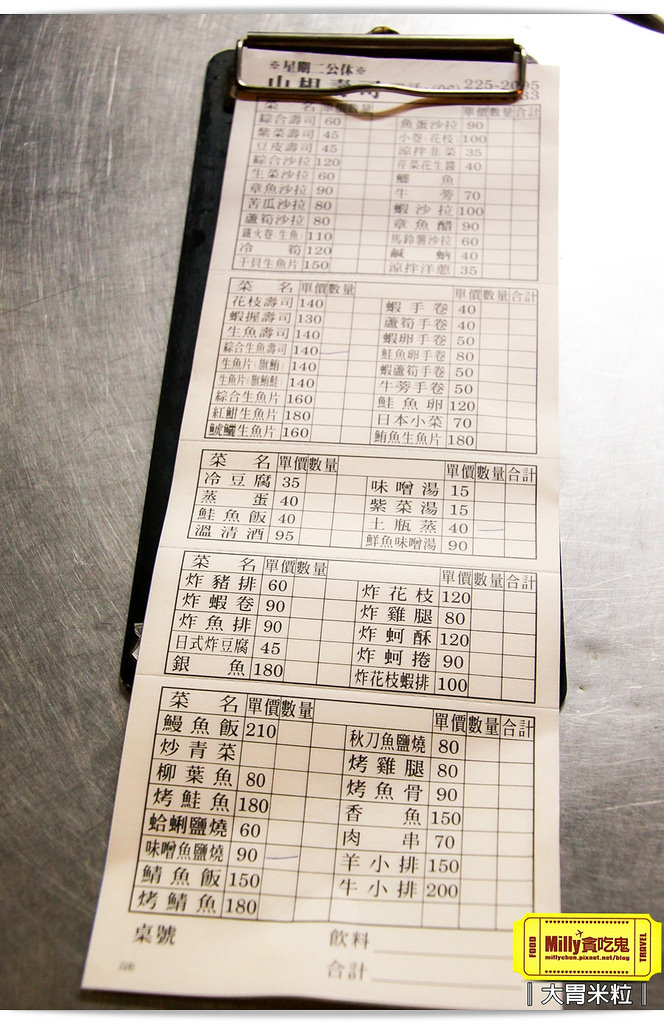 ※星期二公休※
山根壽司 225-2095
菜名 單價 數量 單價 數量 合計
綜合壽司 60 魚蛋沙拉 90
紫菜壽司 45 小卷/花枝 100
豆皮壽司 45 涼拌韭菜 35
綜合沙拉 120 芹菜花生醬 40
生菜沙拉 60 鯽魚
章魚沙拉 90 牛蒡 70
苦瓜沙拉 80 蝦沙拉 100
蘆筍沙拉 80 章魚醋 90
鐵火卷(生魚) 110 馬鈴薯沙拉 60
冷筍 120 鹹蚋 40
干貝生魚片 150 涼拌洋蔥 35
菜名 單價 數量 單價 數量 合計
花枝壽司 140 蝦手卷 40
蝦握壽司 130 蘆筍手卷 40
生魚壽司 140 蝦卵手卷 50
綜合生魚壽司 140 鮭魚卵手卷 80
生魚片(旗鮪) 140 蝦蘆筍手卷 50
生魚片(旗鮪鮭) 140 牛蒡手卷 50
綜合生魚片 160 鮭魚卵 120
紅魽生魚片 180 日本小菜 70
鱸生魚片 160 鮪魚生魚片 180
菜名 單價 數量 單價 數量 合計
冷豆腐 35 味噌湯 15
蒸蛋 40 紫菜湯 15
鮭魚飯 40 土瓶蒸 40
溫清酒 95 鮮魚味噌湯 90
菜名 單價 數量 單價 數量 合計
炸豬排 60 炸花枝 120
炸蝦卷 90 炸雞腿 80
炸魚排 90 炸蚵酥 120
日式炸豆腐 45 炸蚵捲 90
銀魚 180 炸花枝蝦排 100
菜名 單價 數量 單價 數量 合計
鰻魚飯 210 秋刀魚鹽燒 80
炒青菜 烤雞腿 80
柳葉魚 80 烤魚骨 90
烤鮭魚 180 香魚 150
蛤蜊鹽燒 60 肉串 70
味噌魚鹽燒 90 羊小排 150
鯖魚飯 150 牛小排 200
烤鯖魚 180
桌號 飲料
合計
FOOD Milly貪吃鬼 TRAVEL
millychun.pixnet.net/blog
|大胃米粒|